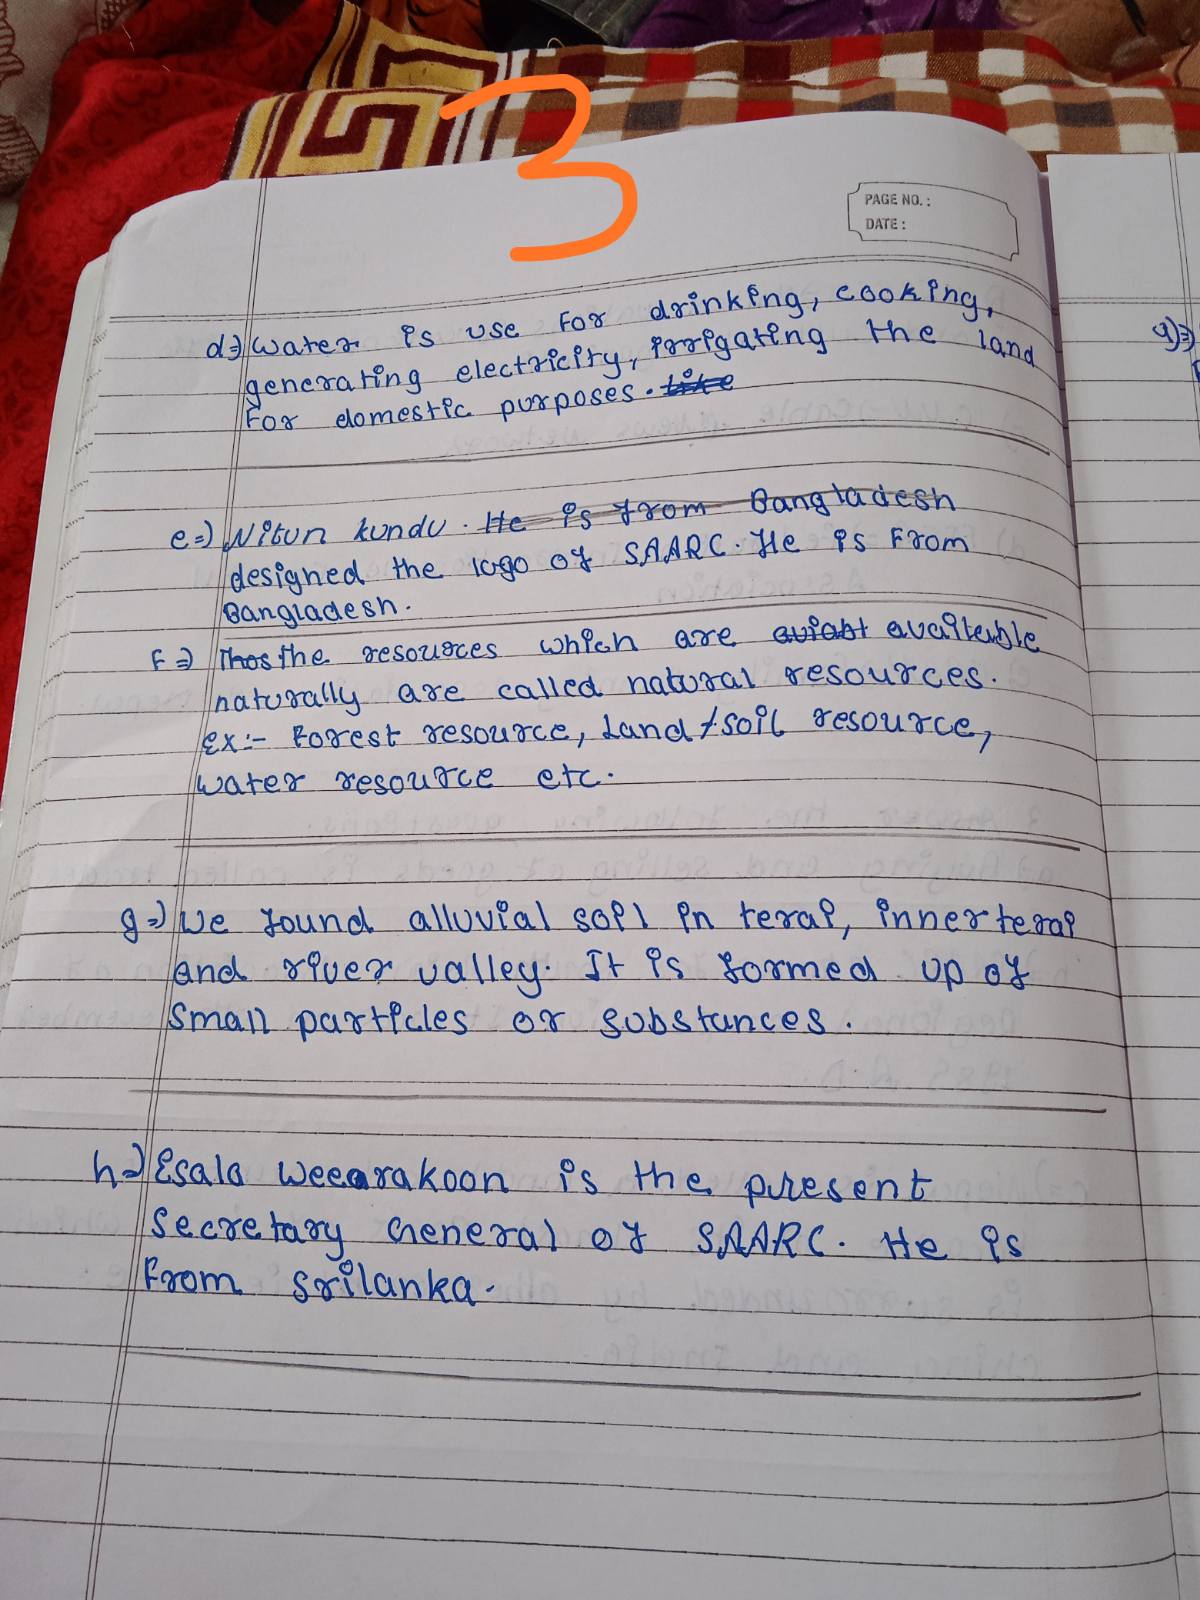 3
PAGE NO. :
DATE :
d⇒) Water is use for drinking, cooking,
generating electricity, irrigating the land
for domestic purposes. like
e⇒) Nitun kundu. He is from Bangladesh
designed the logo of SAARC. He is from
Bangladesh.
F⇒) Thos the resources which are aviabt availeble
naturally are called natural resources.
ex:- Forest resource, Land/soil resource,
water resource etc.
g⇒) We found alluvial soil in terai, inner terai
and river valley. It is formed up of
small particles or substances.
h⇒) Esala Weearakoon is the present
Secretary General of SAARC. He is
from srilanka.
g)⇒